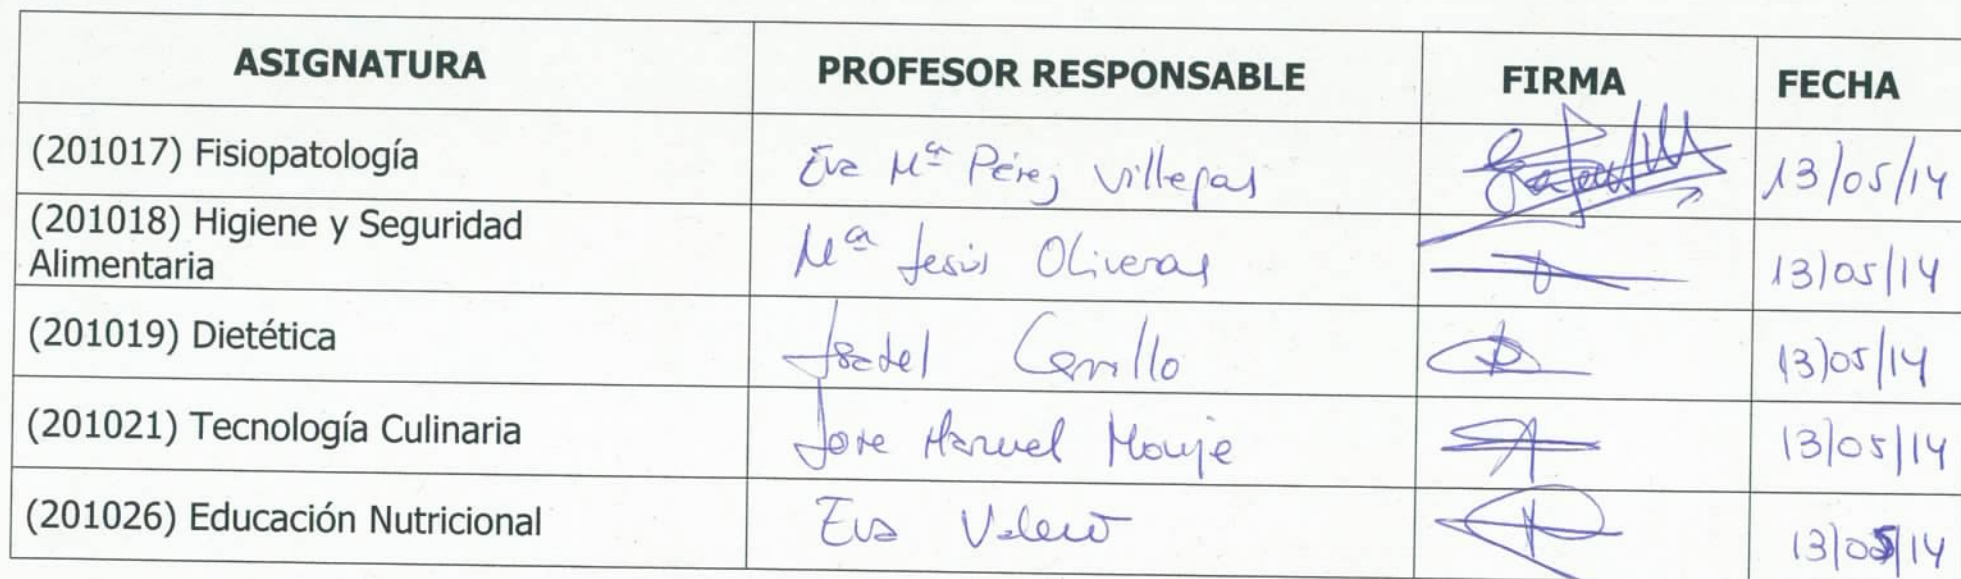 ASIGNATURA PROFESOR RESPONSABLE FIRMA FECHA
(201017) Fisiopatología Eva Mª Pérez Villegas 13/05/14
(201018) Higiene y Seguridad
Alimentaria Mª Jesús Oliveras 13/05/14
(201019) Dietética Isabel Cerrillo 13/05/14
(201021) Tecnología Culinaria Jose Manuel 13/05/14
(201026) Educación Nutricional Eva Valero 13/05/14